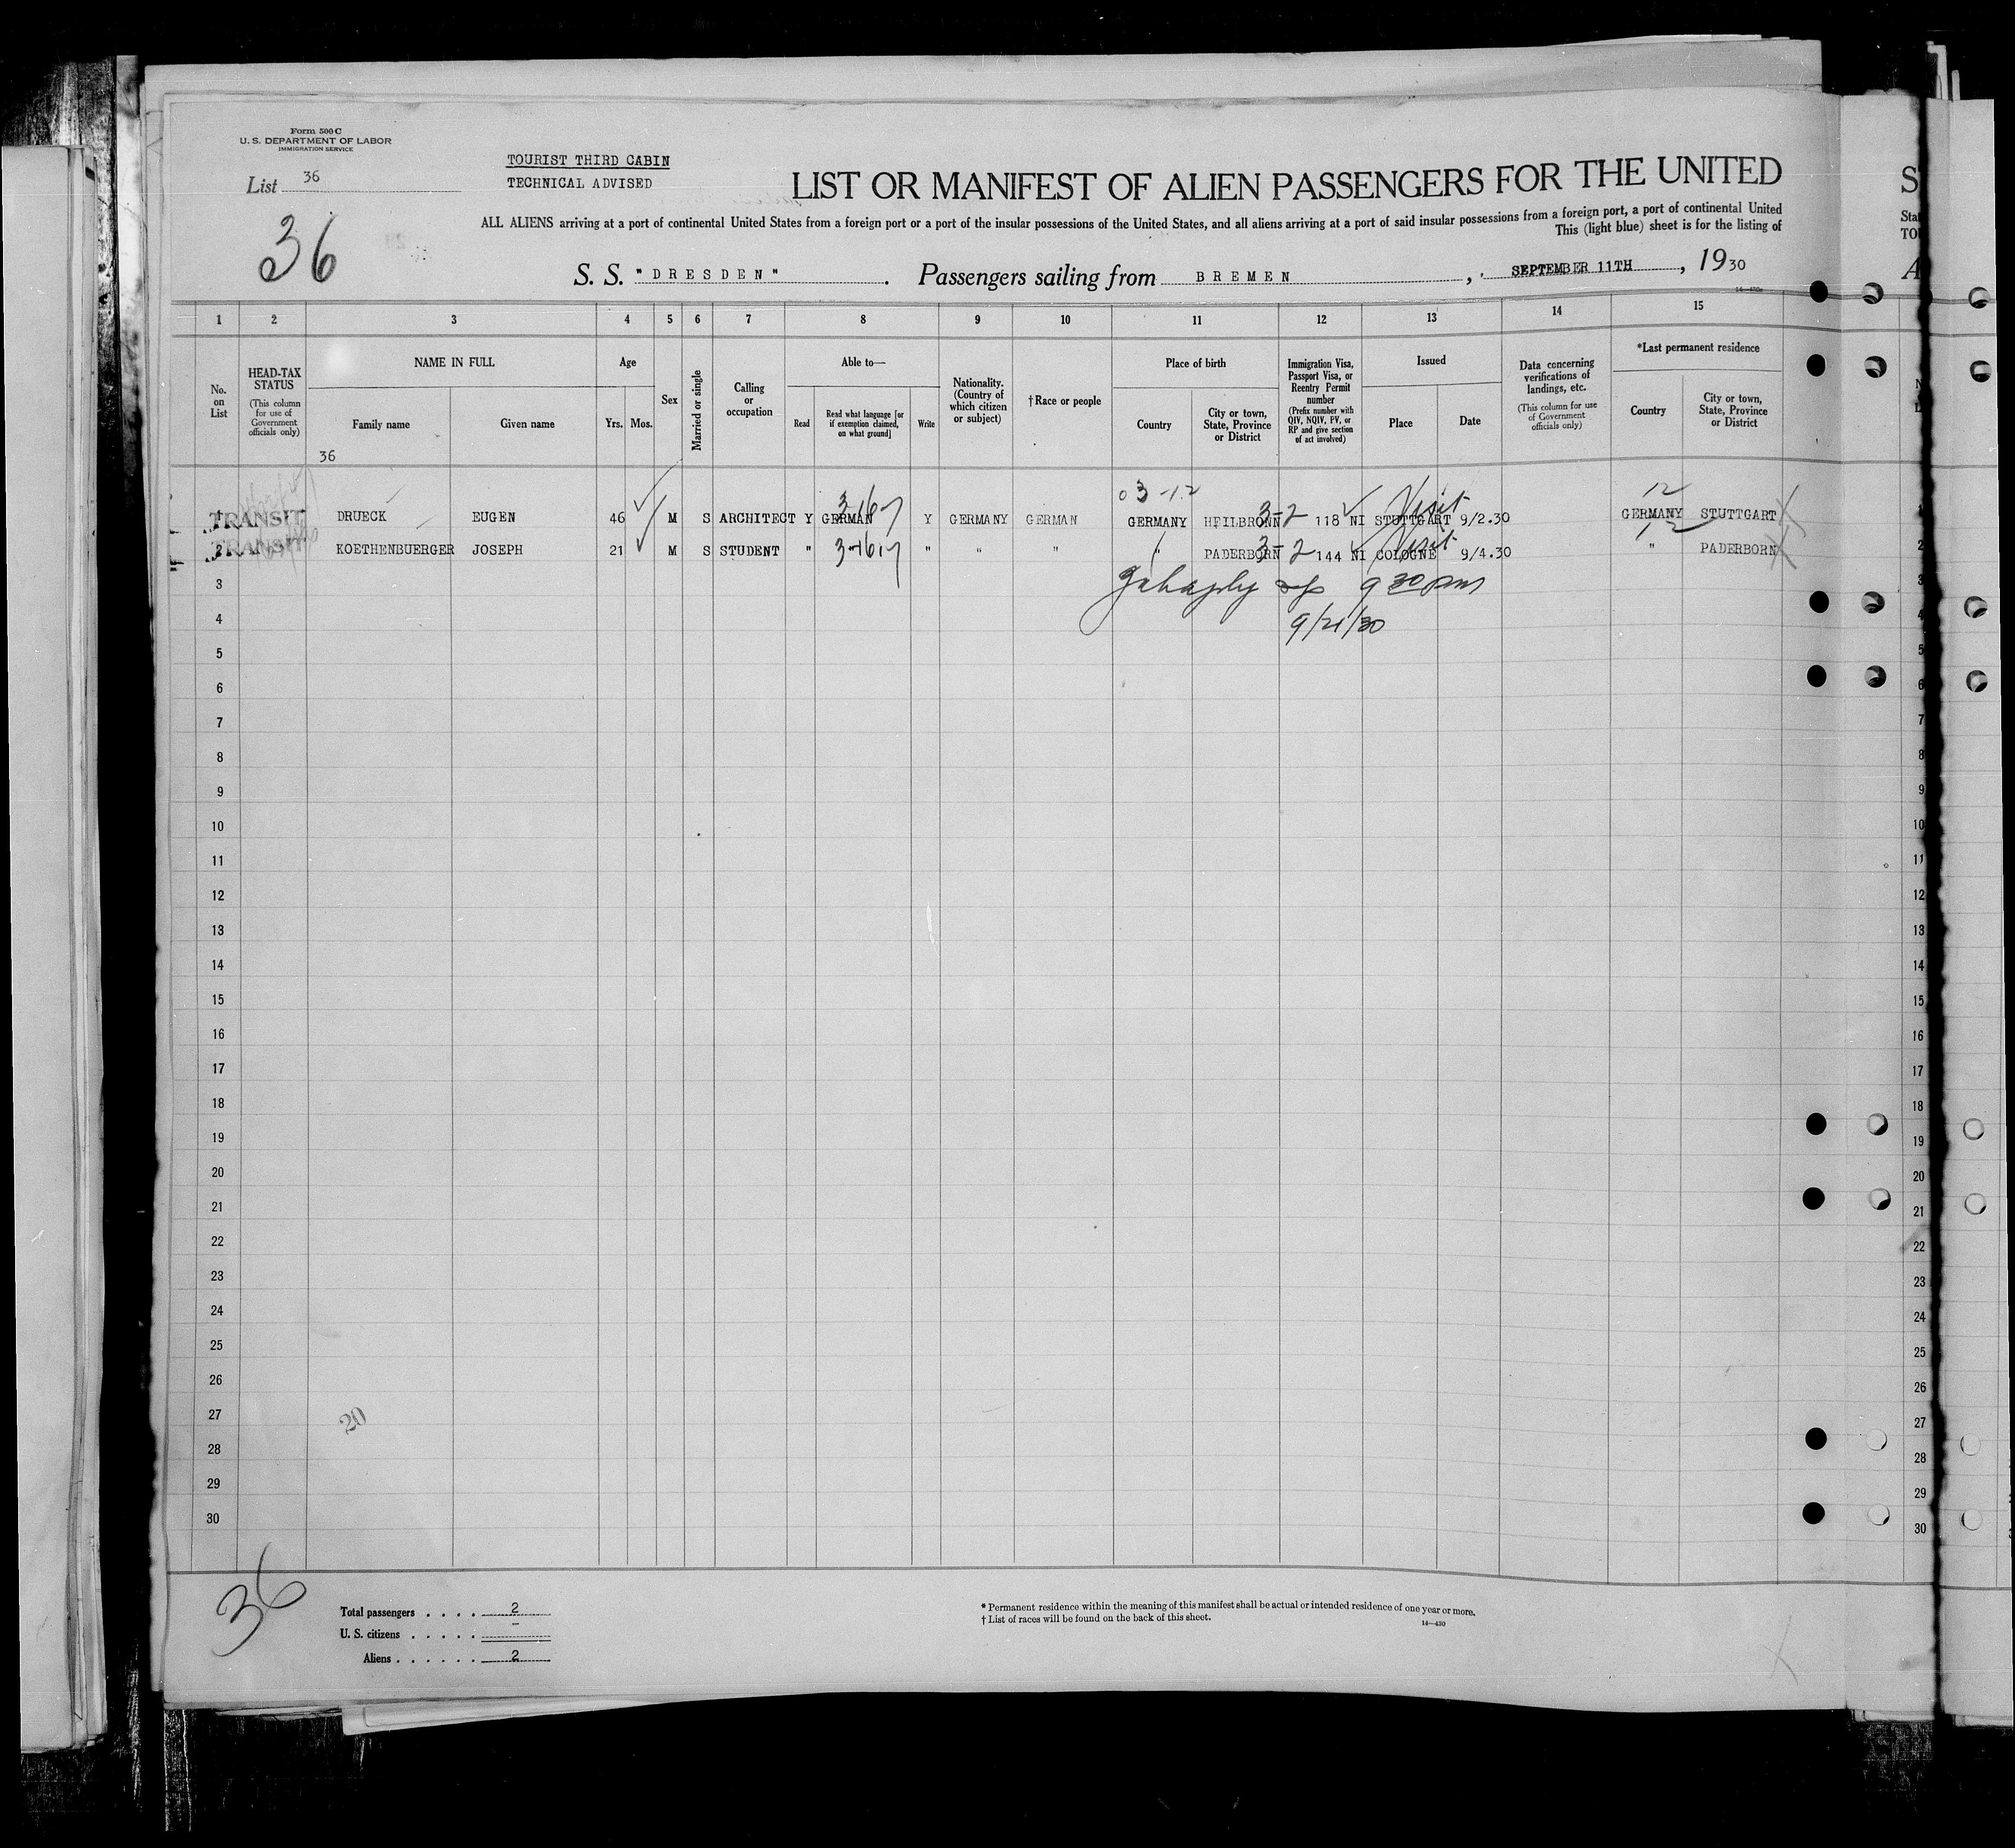 Form 500 C
U. S. DEPARTMENT OF LABOR
IMMIGRATION SERVICE
List 36
36
TOURIST THIRD CABIN
TECHNICAL ADVISED
LIST OR MANIFEST OF ALIEN PASSENGERS FOR THE UNITED
ALL ALIENS arriving at a port of continental United States from a foreign port or a port of the insular possessions of the United States, and all aliens arriving at a port of said insular possessions from a foreign port, a port of continental United
This (light blue) sheet is for the listing of
S. S. "DRESDEN". Passengers sailing from BREMEN, SEPTEMBER 11TH, 1930
1 2 3 4 5 6 7 8 9 10 11 12 13 14 15
No. on List
HEAD-TAX STATUS
(This column for use of Government officials only)
NAME IN FULL
Family name Given name
36
Age
Yrs. Mos.
Sex
Married or single
Calling or occupation
Able to—
Read
Read what language [or if exemption claimed, on what ground]
Write
Nationality. (Country of which citizen or subject)
†Race or people
Place of birth
Country
City or town, State, Province or District
Immigration Visa, Passport Visa, or Reentry Permit number
(Prefix number with QIV, NQIV, PV, or RP and give section of act involved)
Issued
Place Date
Data concerning verifications of landings, etc.
(This column for use of Government officials only)
*Last permanent residence
Country
City or town, State, Province or District
03-12 12
1 TRANSIT DRUECK EUGEN 46 M S ARCHITECT Y GERMAN Y GERMANY GERMAN GERMANY HEILBRONN 3-2 118 NI STUTTGART Visit 9/2.30 GERMANY STUTTGART
2 TRANSIT KOETHENBUERGER JOSEPH 21 M S STUDENT " " " " " PADERBORN 3-2 144 NI COLOGNE Visit 9/4.30 " PADERBORN
3 9 30 pm
4 9/21/30
5
6
7
8
9
10
11
12
13
14
15
16
17
18
19
20
21
22
23
24
25
26
27
28
29
30
20
36
Total passengers 2
U. S. citizens –
Aliens 2
* Permanent residence within the meaning of this manifest shall be actual or intended residence of one year or more.
† List of races will be found on the back of this sheet.
14—430